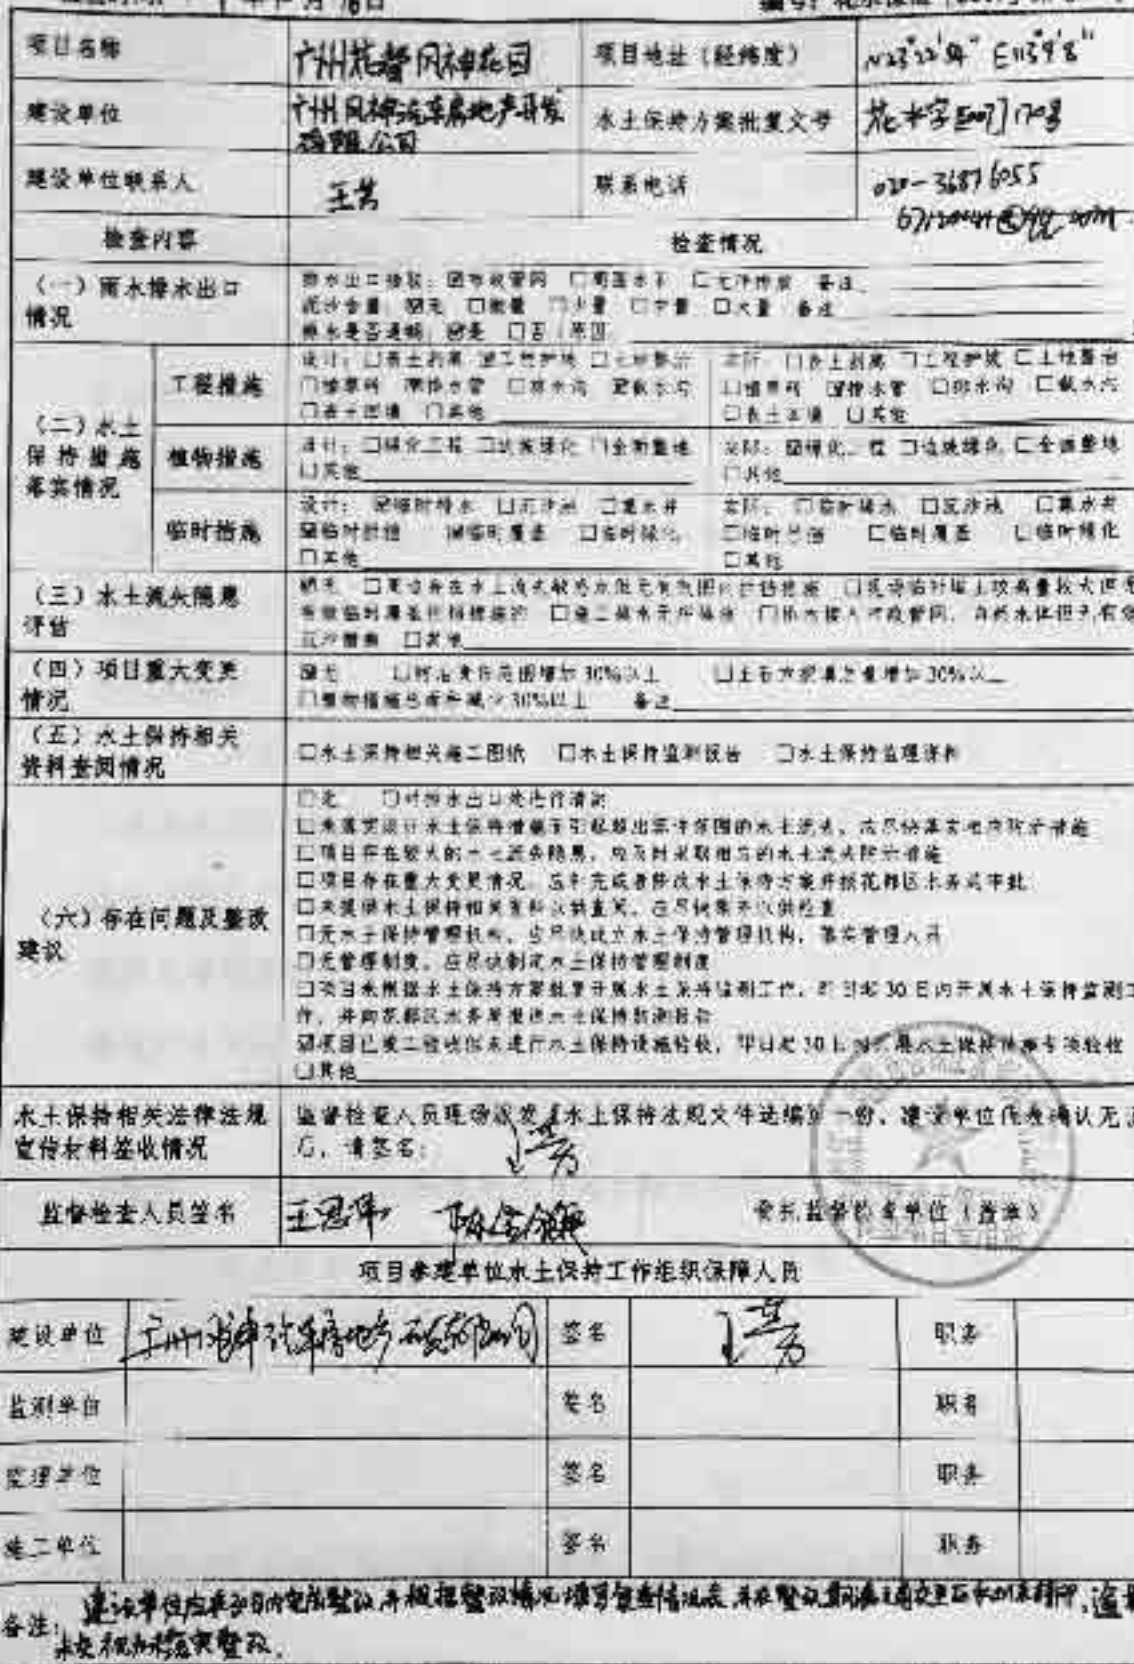 项目名称 广州花都风神花园 项目地址（经纬度） N23°22′54″ E113°9′8″
建设单位 广州风神汽车房地产开发有限公司 水土保持方案批复文号 花水字[2007]170号
建设单位联系人 王芳 联系电话 020-36876055
@qq.com
检查内容 检查情况
（一）雨水排水出口情况
排水出口接驳：☑市政管网 □周围水系 □无序排放 备注
泥沙含量：☑无 □微量 □少量 □中量 □大量 备注
排水是否通畅：☑是 □否（原因
（二）水土保持措施落实情况
工程措施
设计：□表土剥离 ☑工程护坡 □土地整治
□植草砖 ☑排水管 □排水沟 ☑截水沟
□表土回填 □其他
实际：□表土剥离 □工程护坡 □土地整治
□植草砖 ☑排水管 □排水沟 □截水沟
□表土回填 □其他
植物措施
设计：□绿化工程 □边坡绿化 □全面整地
□其他
实际：☑绿化工程 □边坡绿化 □全面整地
□其他
临时措施
设计：☑临时排水 □沉沙池 □集水井
☑临时拦挡 ☑临时覆盖 □临时绿化
□其他
实际：□临时排水 □沉沙池 □集水井
□临时拦挡 □临时覆盖 □临时绿化
□其他
（三）水土流失隐患评估
☑无 □周边存在水土流失敏感点但无有效围栏拦挡措施 □现场临时堆土较高量较大但无
有效临时覆盖拦挡措施 □施工排水无序排放 □排水接入市政管网、自然水体但无有效
沉沙措施 □其他
（四）项目重大变更情况
☑无 □防治责任范围增加30%以上 □土石方挖填总量增加30%以上
□植物措施总面积减少30%以上 备注
（五）水土保持相关资料查阅情况
□水土保持相关施工图纸 □水土保持监测报告 □水土保持监理资料
（六）存在问题及整改建议
□无 □对排水出口处进行清淤
□未落实设计水土保持措施而引起超出允许范围的水土流失，应尽快落实相应防治措施
□项目存在较大的水土流失隐患，应及时采取相应的水土流失防治措施
□项目存在重大变更情况，应补充或者修改水土保持方案并报花都区水务局审批
□未提供水土保持相关资料以供查阅，应尽快集齐以供检查
□无水土保持管理机构，应尽快成立水土保持管理机构，落实管理人员
□无管理制度，应尽快制定水土保持管理制度
□项目未根据水土保持方案批复开展水土保持监测工作，即日起30日内开展水土保持监测工
作，并向花都区水务局报送水土保持监测报告
☑项目已竣工验收但未进行水土保持设施验收，即日起30日内开展水土保持设施专项验收
□其他
水土保持相关法律法规宣传材料签收情况
监督检查人员现场派发《水土保持法规文件选编》一份，建设单位代表确认无误
后，请签名： 王芳
监督检查人员签名 委托监督检查单位（盖章）
项目参建单位水土保持工作组织保障人员
建设单位 签名 王芳 职务
监测单位 签名 职务
监理单位 签名 职务
施工单位 签名 职务
备注：